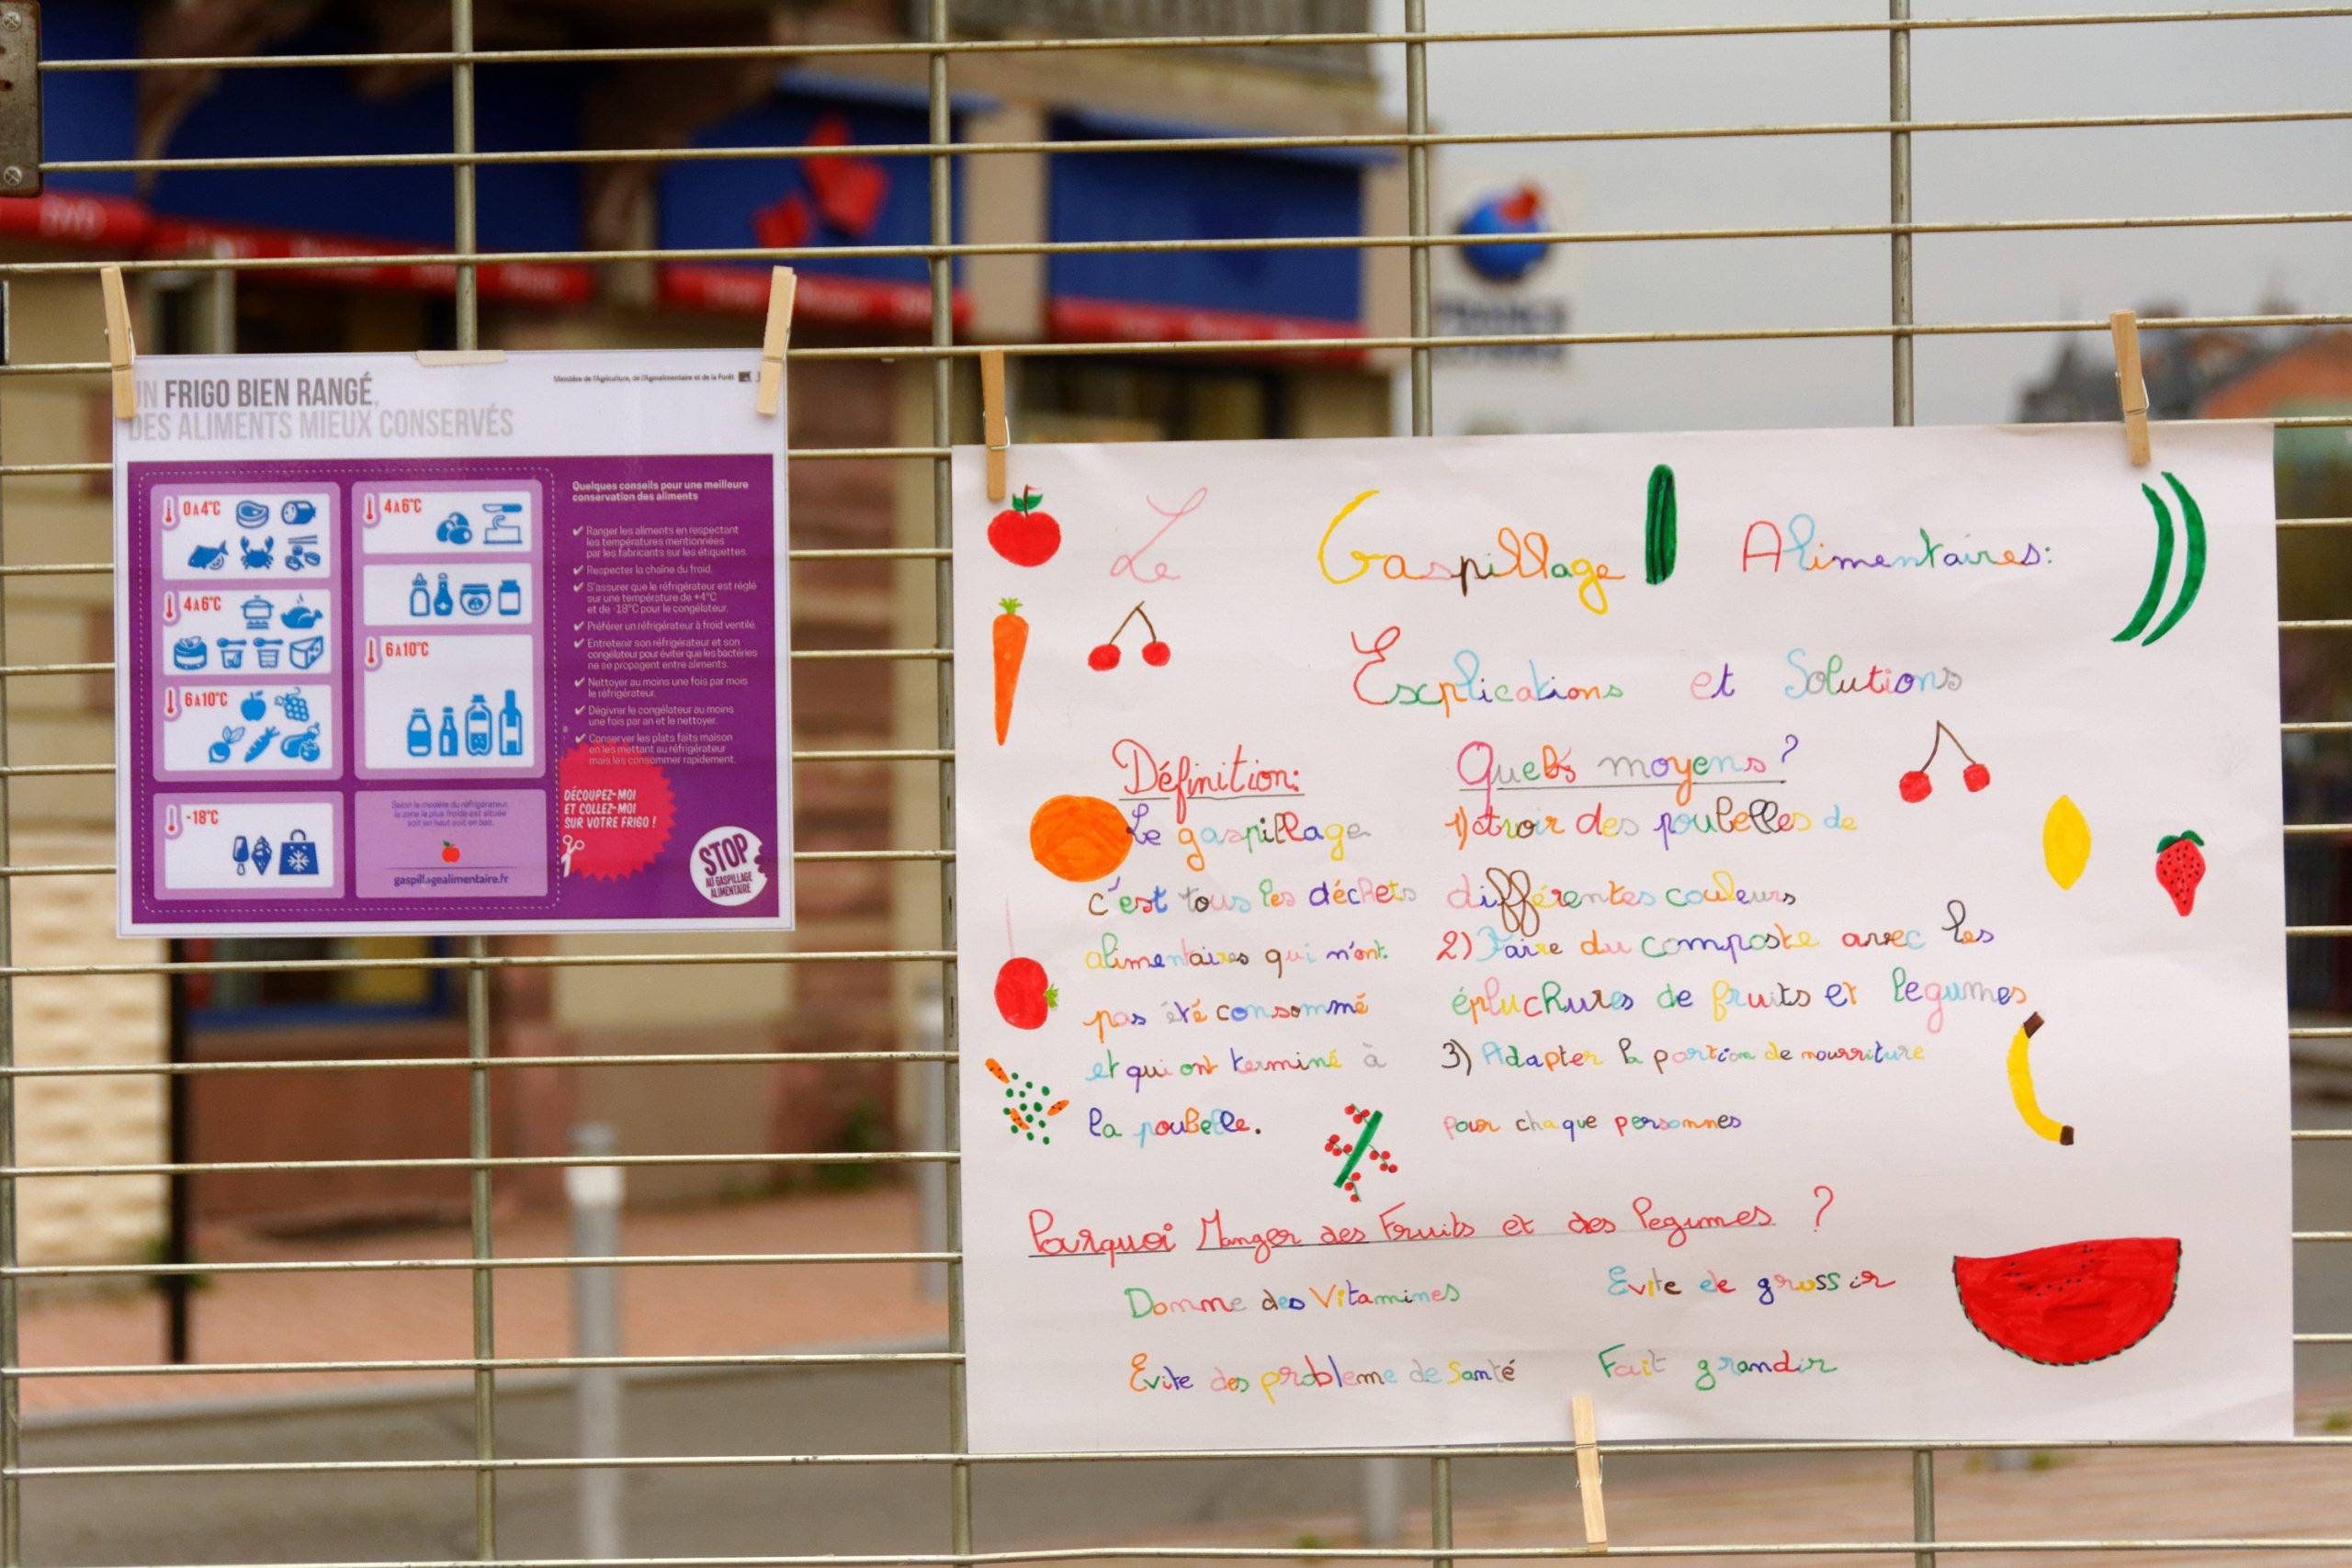 UN FRIGO BIEN RANGÉ,
DES ALIMENTS MIEUX CONSERVÉS
Ministère de l'Agriculture, de l'Agroalimentaire et de la Forêt
0 À 4°C
4 À 6°C
6 À 10°C
-18°C
4 À 6°C
6 À 10°C
Selon le modèle du réfrigérateur,
la zone la plus froide est située
soit en haut soit en bas.
gaspillagealimentaire.fr
Quelques conseils pour une meilleure
conservation des aliments
✔ Ranger les aliments en respectant
les températures mentionnées
par les fabricants sur les étiquettes.
✔ Respecter la chaîne du froid.
✔ S'assurer que le réfrigérateur est réglé
sur une température de +4°C
et de -18°C pour le congélateur.
✔ Préférer un réfrigérateur à froid ventilé.
✔ Entretenir son réfrigérateur et son
congélateur pour éviter que les bactéries
ne se propagent entre aliments.
✔ Nettoyer au moins une fois par mois
le réfrigérateur.
✔ Dégivrer le congélateur au moins
une fois par an et le nettoyer.
✔ Conserver les plats faits maison
en les mettant au réfrigérateur
mais les consommer rapidement.
DÉCOUPEZ-MOI
ET COLLEZ-MOI
SUR VOTRE FRIGO !
STOP
AU GASPILLAGE
ALIMENTAIRE
Le Gaspillage Alimentaires:
Explications et Solutions
Définition:
Le gaspillage
c'est tous les déchets
alimentaires qui n'ont
pas été consommé
et qui ont terminé à
la poubelle.
Quels moyens ?
1) avoir des poubelles de
différentes couleurs
2) Faire du composte avec les
épluchures de fruits et legumes
3) Adapter la portion de nourriture
pour chaque personnes
Pourquoi Manger des Fruits et des legumes ?
Donne des Vitamines
Evite de grossir
Evite des probleme de Santé
Fait grandir